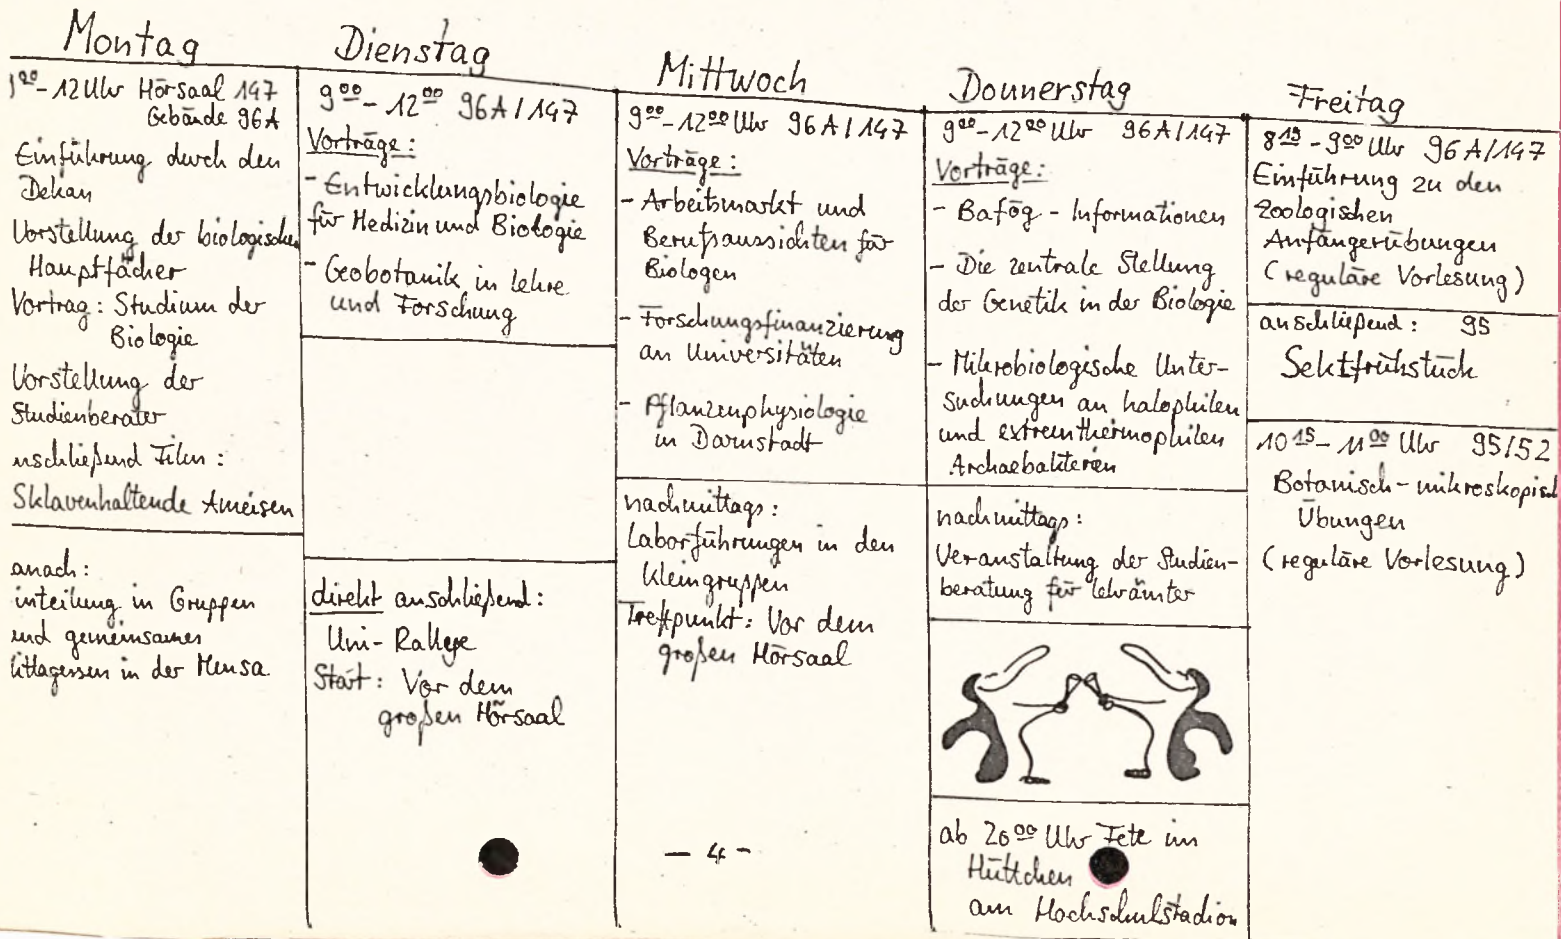 Montag
900-12 Uhr Hörsaal 147
Gebäude 96A
Einführung durch den
Dekan
Vorstellung der biologischen
Hauptfächer
Vortrag: Studium der
Biologie
Vorstellung der
Studienberater
nschließend Film:
Sklavenhaltende Ameisen
anach:
inteilung in Gruppen
und gemeinsames
ittagessen in der Mensa
Dienstag
9⁰⁰-12⁰⁰ 96A/147
Vorträge:
- Entwicklungsbiologie
für Medizin und Biologie
- Geobotanik in Lehre
und Forschung
direkt anschließend:
Uni-Rallye
Start: Vor dem
großen Hörsaal
Mittwoch
9⁰⁰-12⁰⁰ Uhr 96A/147
Vorträge:
- Arbeitsmarkt und
Berufsaussichten für
Biologen
- Forschungsfinanzierung
an Universitäten
- Pflanzenphysiologie
in Darmstadt
nachmittags:
Laborführungen in den
Kleingruppen
Treffpunkt: Vor dem
großen Hörsaal
- 4 -
Donnerstag
9⁰⁰-12⁰⁰ Uhr 96A/147
Vorträge:
- Bafög-Informationen
- Die zentrale Stellung
der Genetik in der Biologie
- Mikrobiologische Unter-
suchungen an halophilen
und extremthermophilen
Archaebakterien
nachmittags:
Veranstaltung der Studien-
beratung für Lehrämter
ab 20⁰⁰ Uhr Fete im
Hüttchen
am Hochschulstadion
Freitag
8¹⁵-9⁰⁰ Uhr 96A/147
Einführung zu den
zoologischen
Anfängerübungen
(reguläre Vorlesung)
anschließend: 95
Sektfrühstück
10¹⁵-11⁰⁰ Uhr 95/52
Botanisch-mikroskopisch
Übungen
(reguläre Vorlesung)